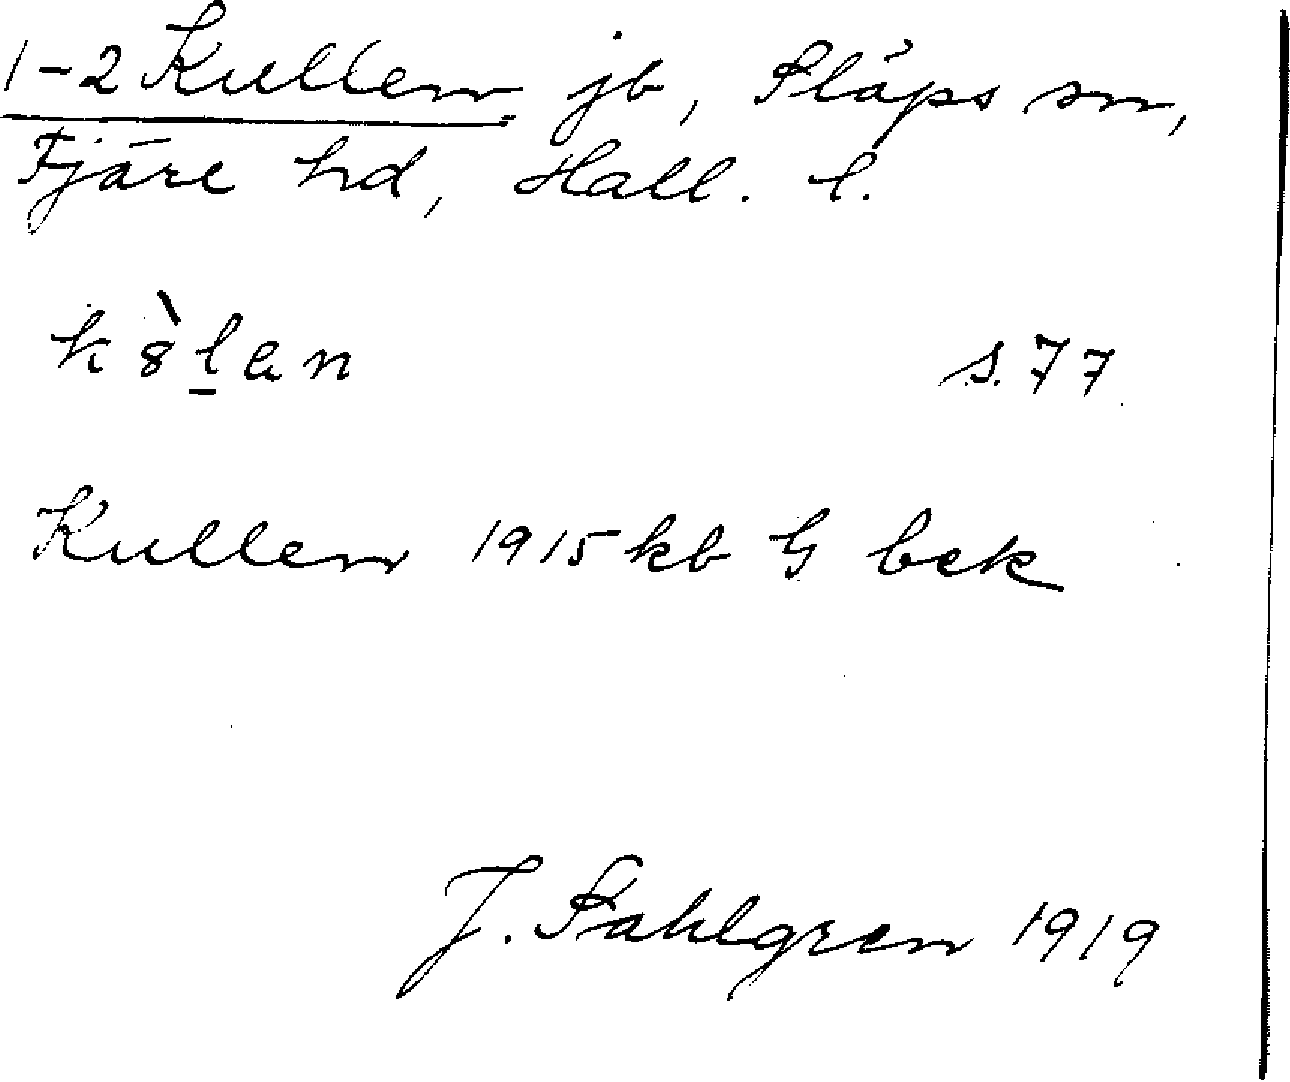 1-2 Kullen jb, Släps sn,
Fjäre hd, Hall. l.
k8̀l̲an s. 77
Kullen 1915 kb G bek
J. Sahlgren 1919